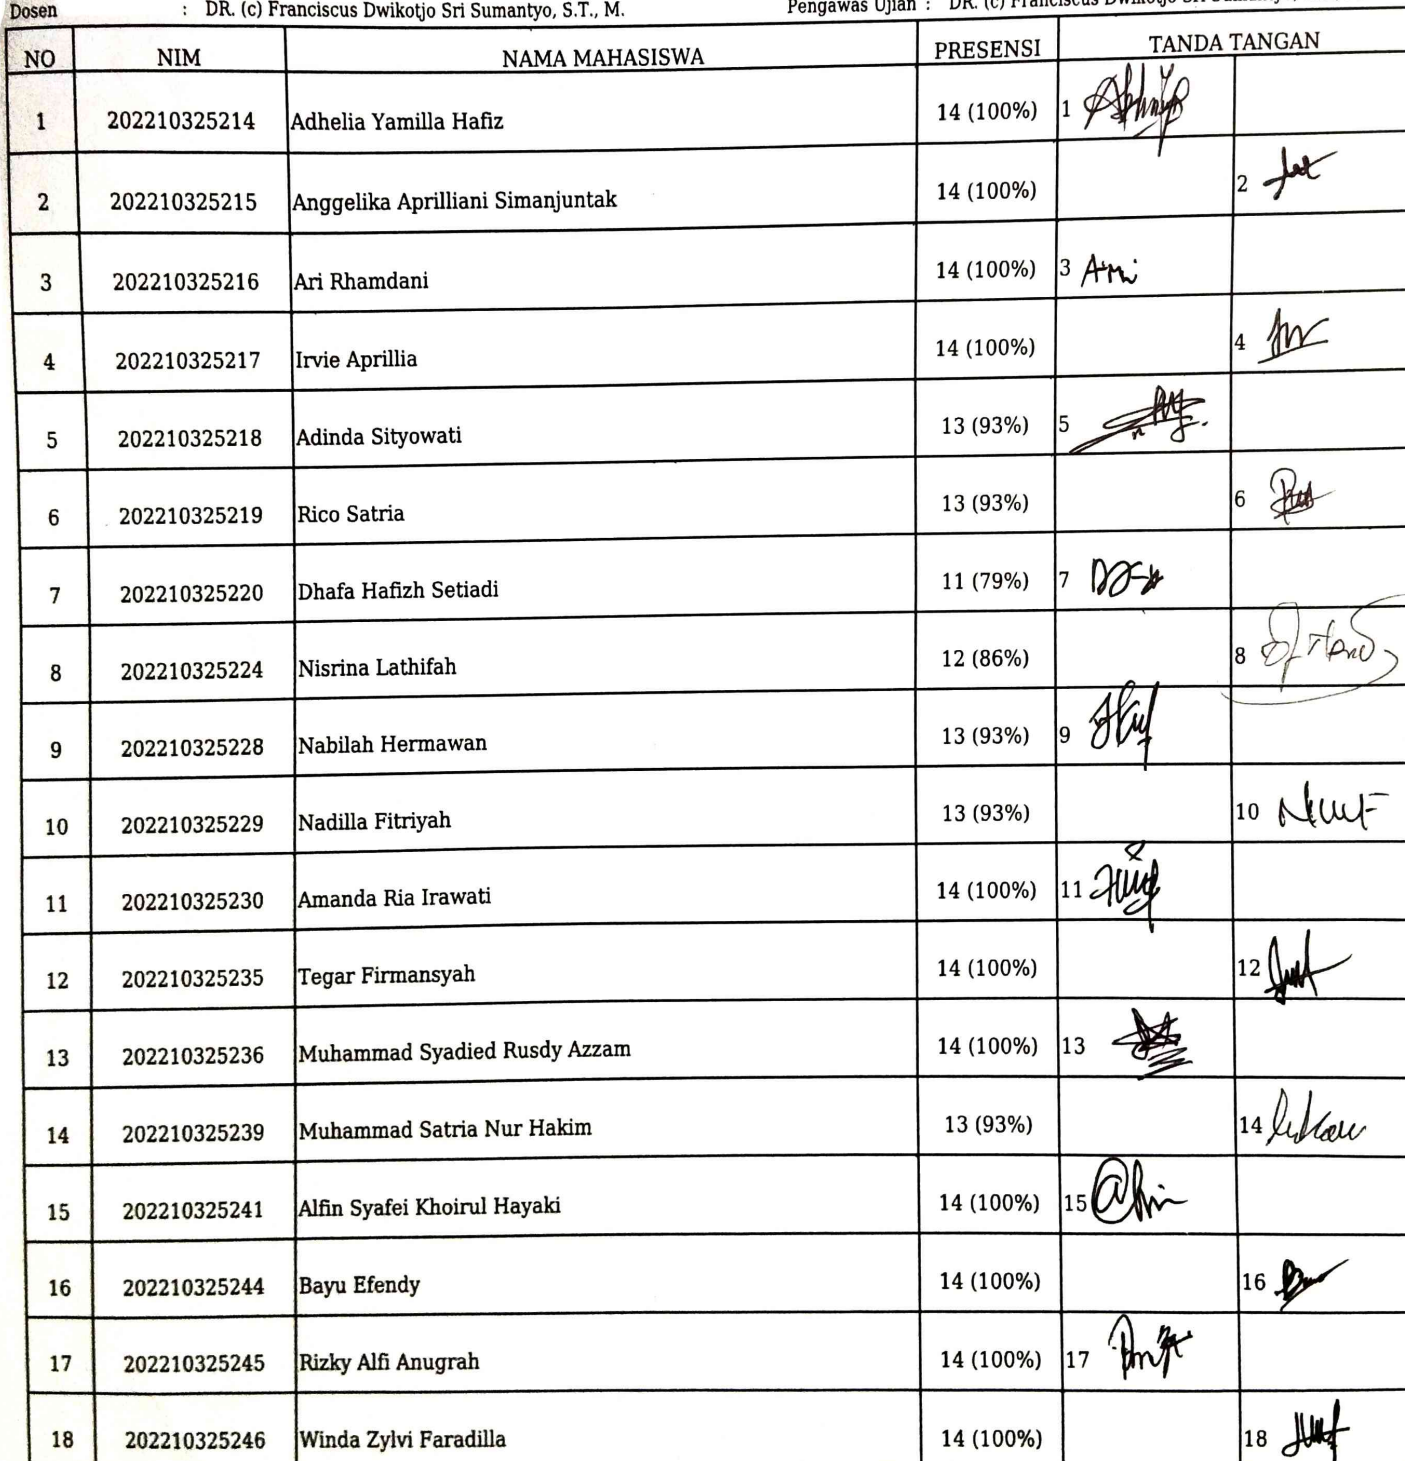 Dosen : DR. (c) Franciscus Dwikotjo Sri Sumantyo, S.T., M. Pengawas Ujian : DR. (c) Franciscus Dwikotjo Sri
NO NIM NAMA MAHASISWA PRESENSI TANDA TANGAN
1 202210325214 Adhelia Yamilla Hafiz 14 (100%) 1
2 202210325215 Anggelika Aprilliani Simanjuntak 14 (100%) 2
3 202210325216 Ari Rhamdani 14 (100%) 3
4 202210325217 Irvie Aprillia 14 (100%) 4
5 202210325218 Adinda Sityowati 13 (93%) 5
6 202210325219 Rico Satria 13 (93%) 6
7 202210325220 Dhafa Hafizh Setiadi 11 (79%) 7
8 202210325224 Nisrina Lathifah 12 (86%) 8
9 202210325228 Nabilah Hermawan 13 (93%) 9
10 202210325229 Nadilla Fitriyah 13 (93%) 10
11 202210325230 Amanda Ria Irawati 14 (100%) 11
12 202210325235 Tegar Firmansyah 14 (100%) 12
13 202210325236 Muhammad Syadied Rusdy Azzam 14 (100%) 13
14 202210325239 Muhammad Satria Nur Hakim 13 (93%) 14
15 202210325241 Alfin Syafei Khoirul Hayaki 14 (100%) 15
16 202210325244 Bayu Efendy 14 (100%) 16
17 202210325245 Rizky Alfi Anugrah 14 (100%) 17
18 202210325246 Winda Zylvi Faradilla 14 (100%) 18